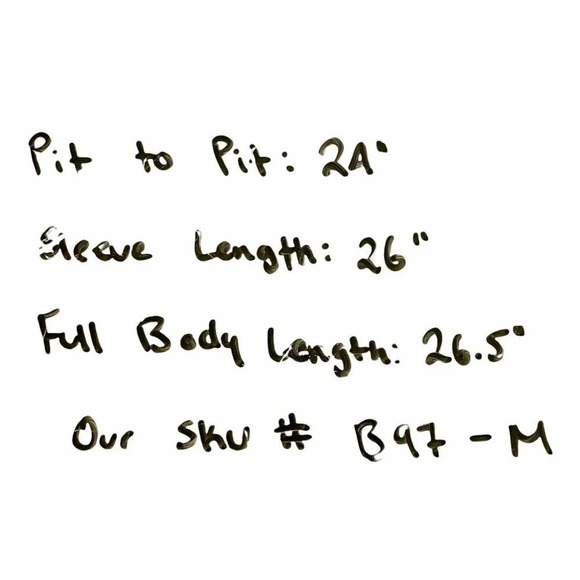 Pit to Pit: 24"
Sleeve Length: 26"
Full Body Length: 26.5"
Our SKU # B97 - M